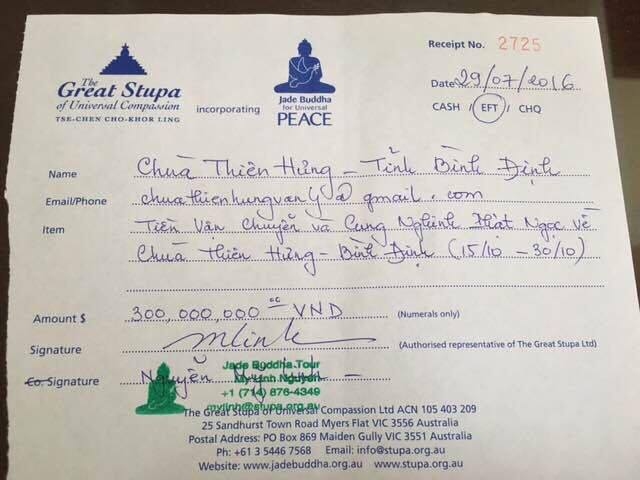 The
Great Stupa
of Universal Compassion
TSE-CHEN CHO-KHOR LING
incorporating
Jade Buddha
for Universal
PEACE
Receipt No. 2725
Date 29/07/2016
CASH / EFT / CHQ
Name Chùa Thiên Hưng - Tỉnh Bình Định
Email/Phone chuathienhungvany@gmail.com
Item Tiền Vận chuyển và Cung Nghinh Phật Ngọc về
Chùa Thiên Hưng - Bình Định (15/10 - 30/10)
Amount $ 300,000,000 VND (Numerals only)
Signature mlinh (Authorised representative of The Great Stupa Ltd)
Co. Signature Nguyễn Mỹ Linh
Jade Buddha Tour
My Linh Nguyen
+1 (714) 876-4349
mylinh@stupa.org.au
The Great Stupa of Universal Compassion Ltd ACN 105 403 209
25 Sandhurst Town Road Myers Flat VIC 3556 Australia
Postal Address: PO Box 869 Maiden Gully VIC 3551 Australia
Ph: +61 3 5446 7568 Email: info@stupa.org.au
Website: www.jadebuddha.org.au www.stupa.org.au